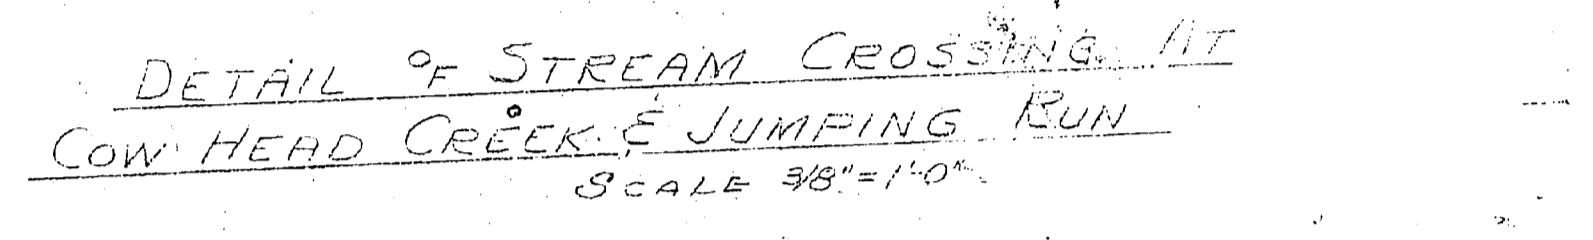 DETAIL OF STREAM CROSSING AT
COW HEAD CREEK & JUMPING RUN
SCALE 3/8"=1'-0"